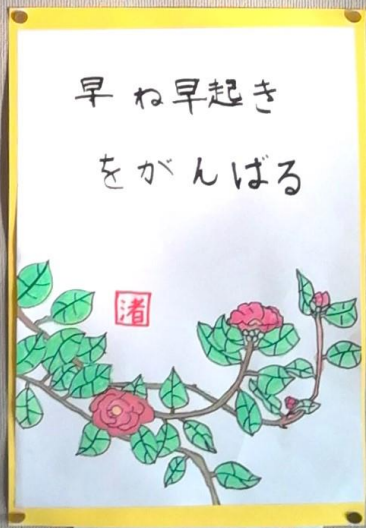 早ね早起き
をがんばる
渚